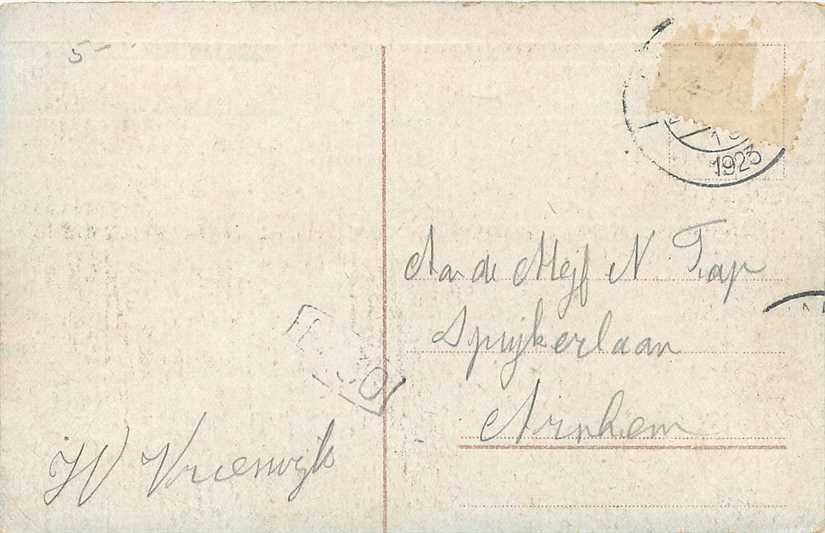 5-
1923
Aan de Mejf N Tap
Spijkerlaan
Arnhem
W Vreeswijk